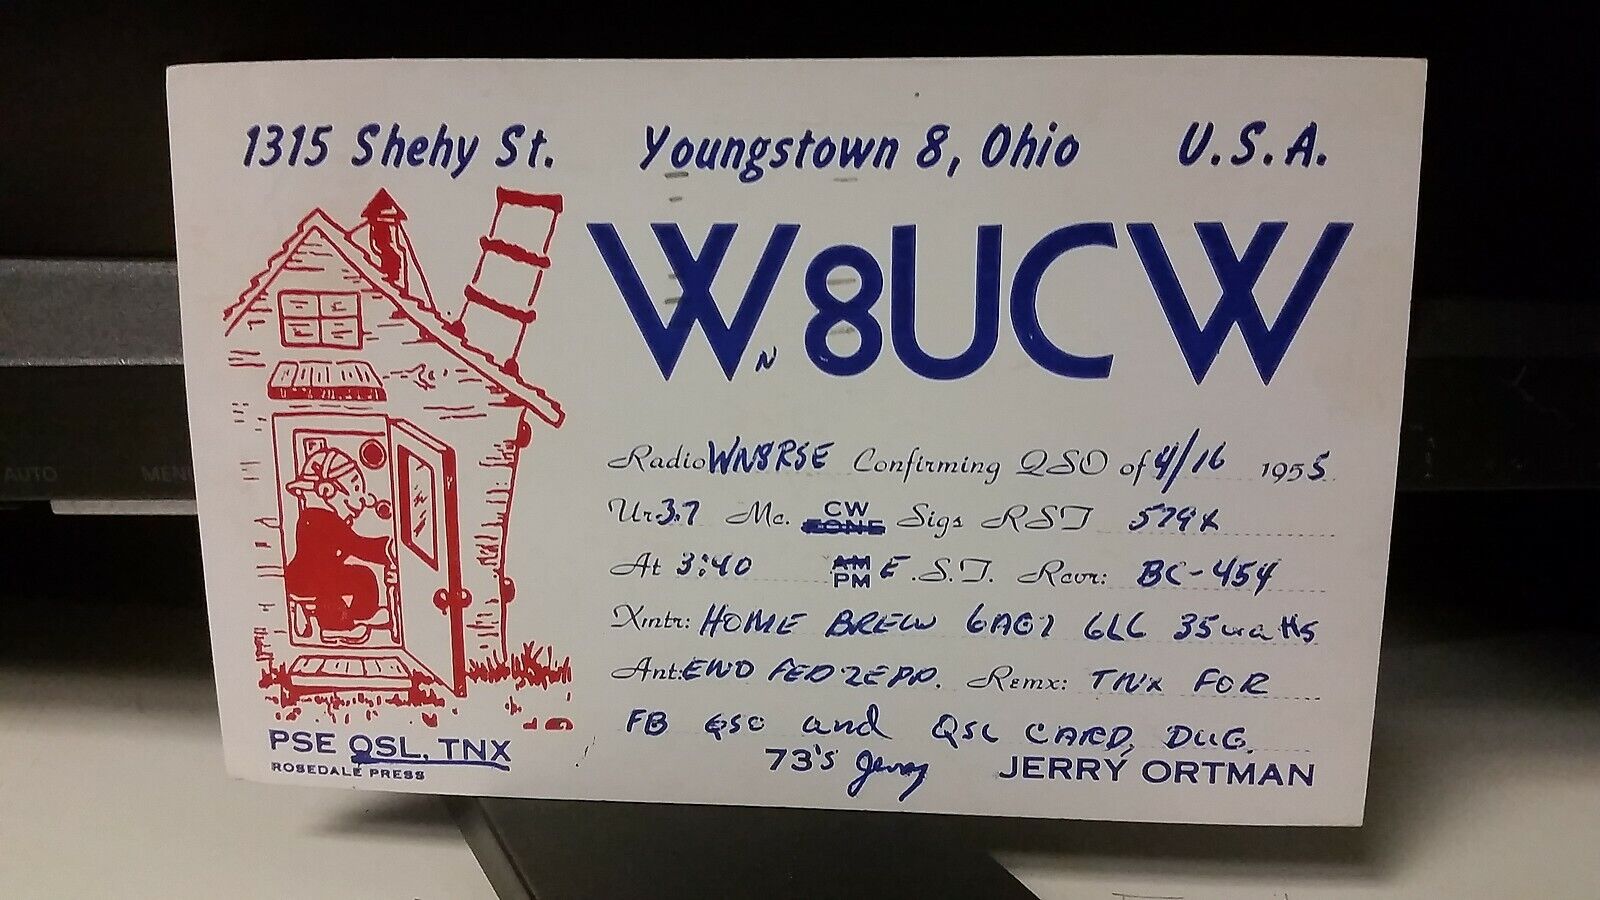 1315 Shehy St. Youngstown 8, Ohio U.S.A.
WN8UCW
Radio WN8RSE Confirming QSO of 4/16 1955
Ur 3.7 Mc. CW FONE Sigs RST 579X
At 3:40 AM PM E.S.T. Rcvr: BC-454
Xmtr: HOME BREW 6AG7 6L6 35 watts
Ant: END FED ZEPP. Remx: TNX FOR
FB QSO and QSL CARD, DUG.
PSE QSL, TNX 73's Jerry JERRY ORTMAN
ROSEDALE PRESS